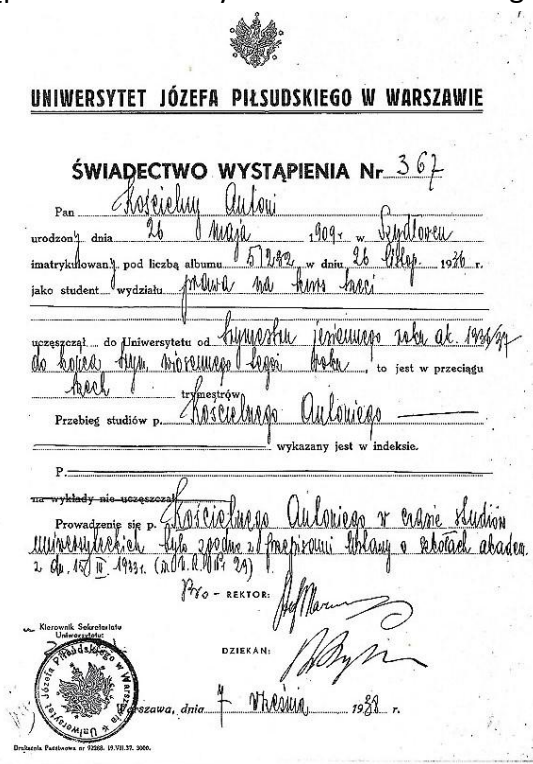 UNIWERSYTET JÓZEFA PIŁSUDSKIEGO W WARSZAWIE
ŚWIADECTWO WYSTĄPIENIA Nr 367
Pan Kościelny Antoni
urodzony dnia 26 maja 1909 r. w Szydłowcu
imatrykulowany pod liczbą albumu 51232 w dniu 26 listop. 1936 r.
jako student wydziału prawa na kurs trzeci
uczęszczał do Uniwersytetu od trymestru jesiennego roku ak. 1936/37
do końca trym. wiosennego tegoż roku, to jest w przeciągu
trzech trymestrów
Przebieg studiów p. Kościelnego Antoniego
wykazany jest w indeksie.
P.
na wykłady nie uczęszczał
Prowadzenie się p. Kościelnego Antoniego w czasie studiów
uniwersyteckich było zgodne z przepisami Ustawy o szkołach akadem.
z dn. 15 III 1933 r. (Nr 29)
Pro - REKTOR:
Kierownik Sekretariatu
Uniwersytetu:
DZIEKAN:
Uniwersytet Józefa Piłsudskiego w Warszawie
Warszawa, dnia 7 września 1938 r.
Drukarnia Państwowa nr 92268. 19.VII.37. 3000.